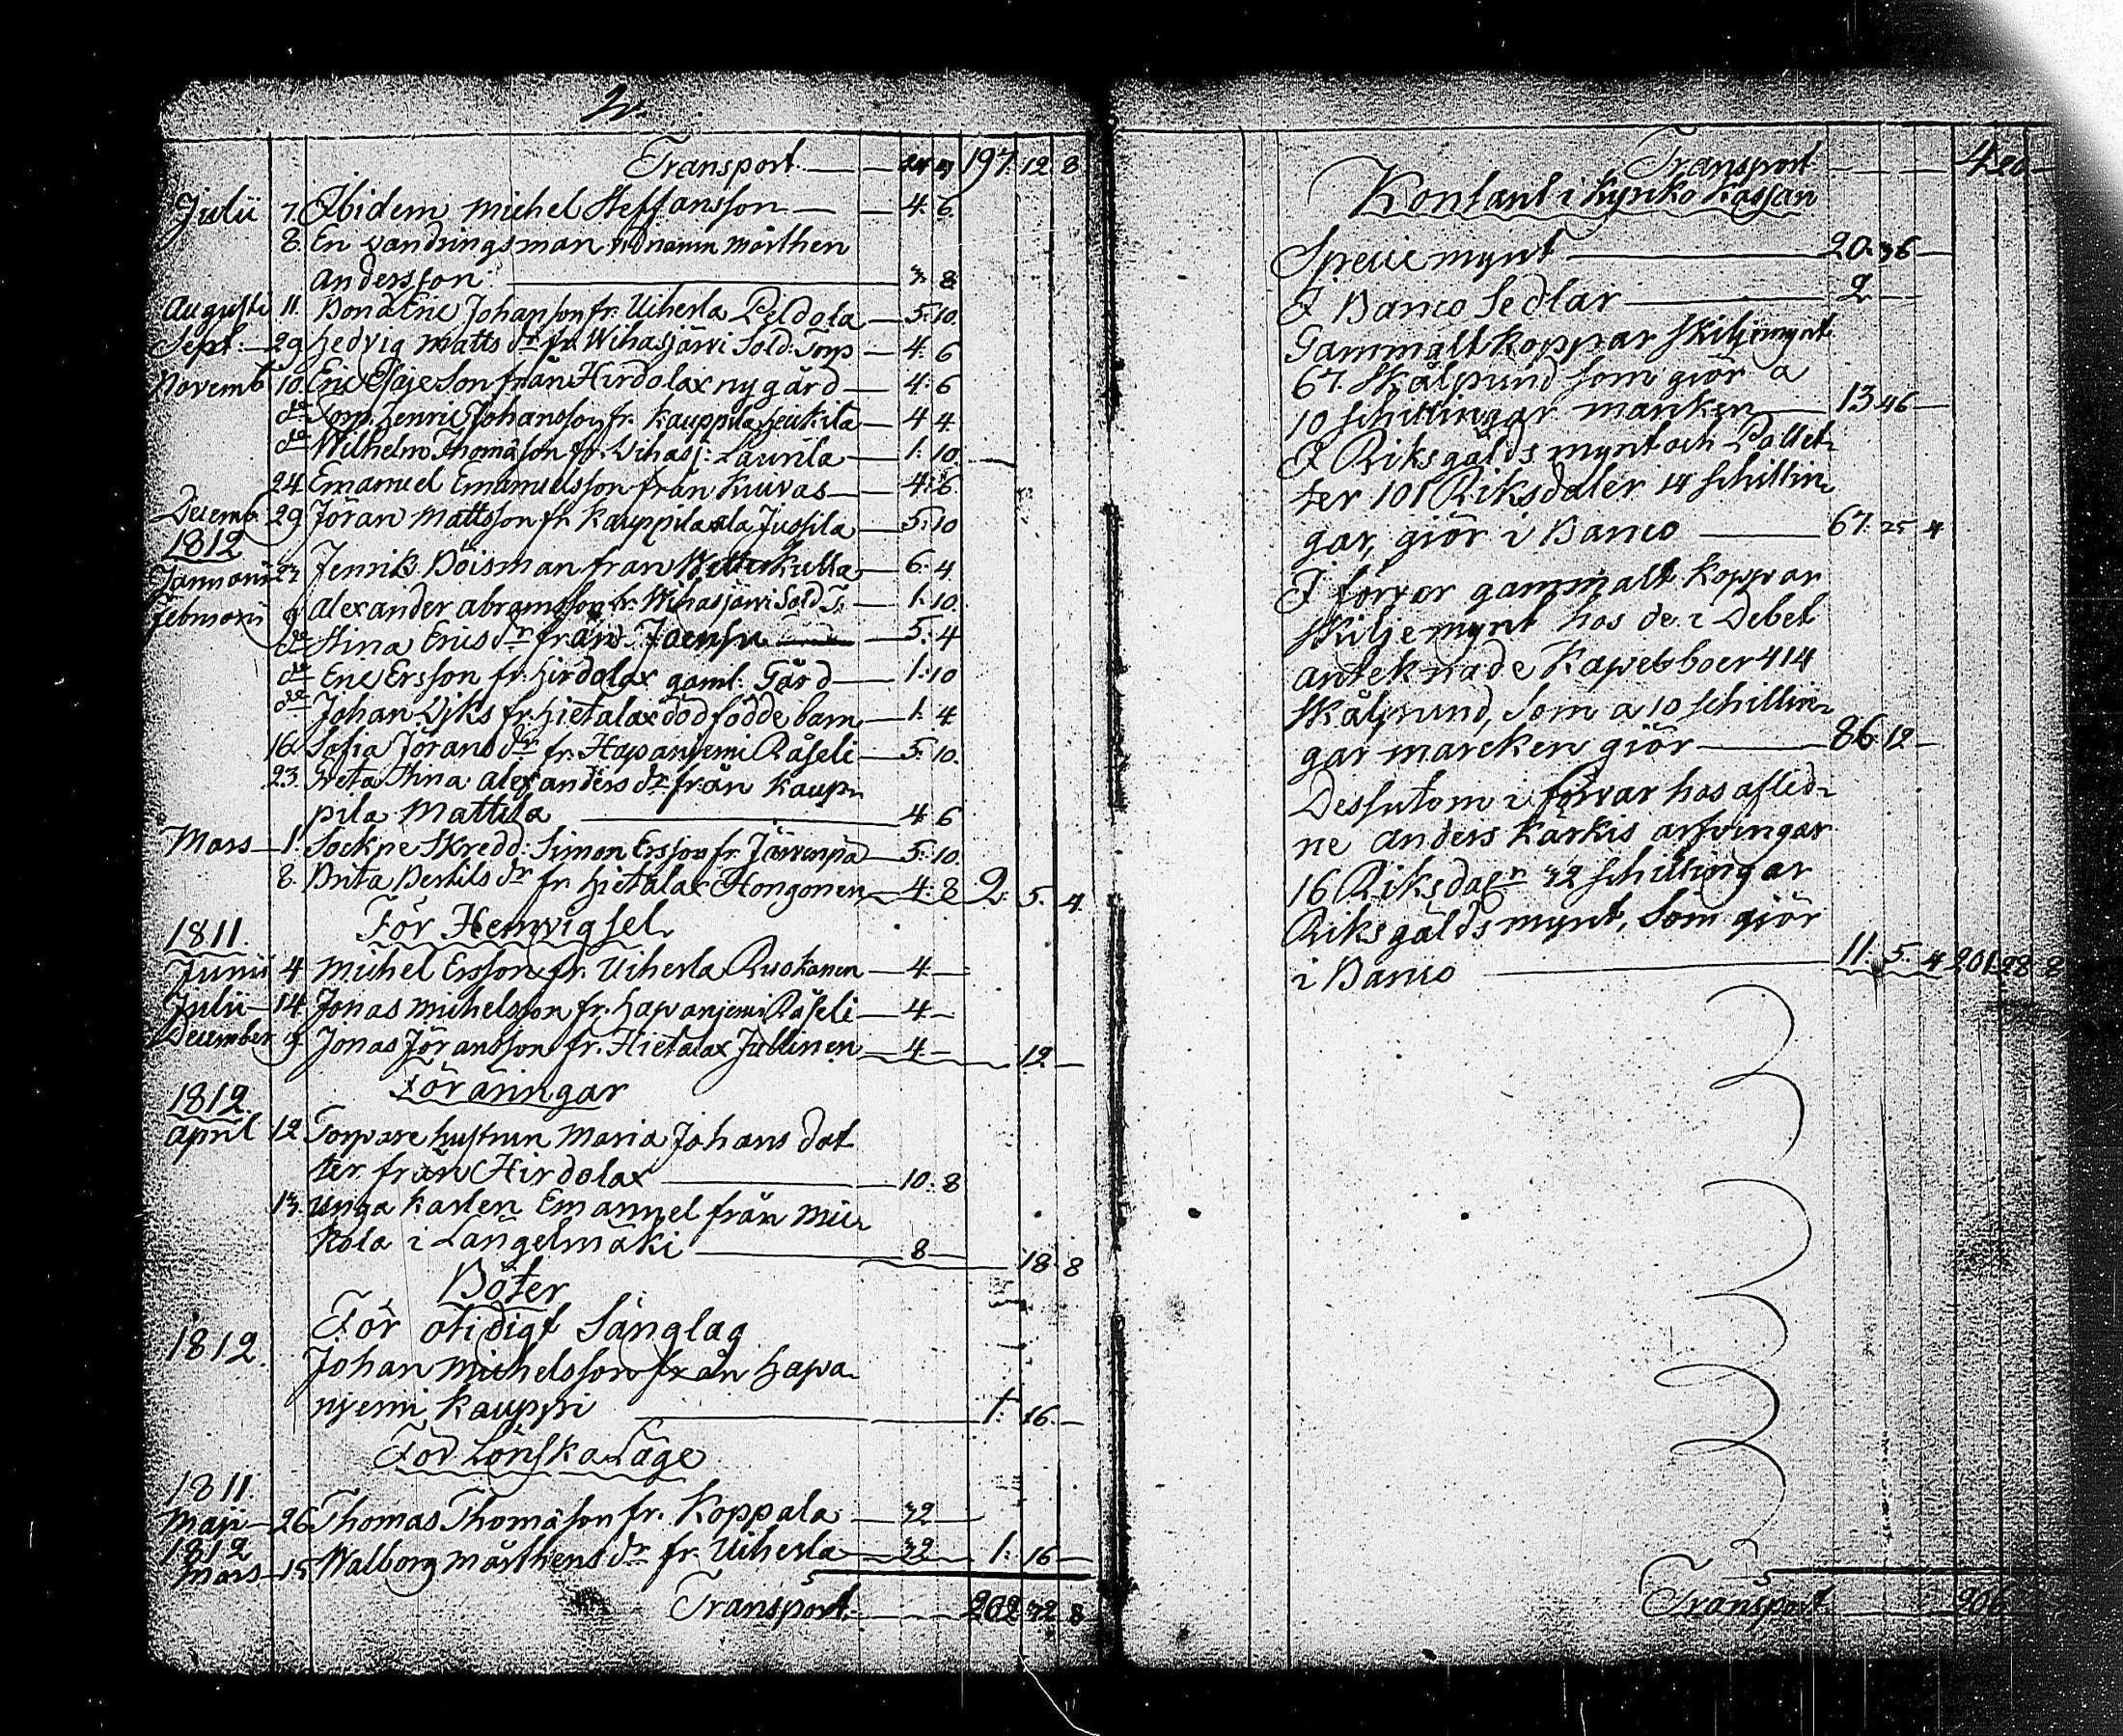 2.
Transport. — 197. 12 8
Julii 7. Ibidem Michel Steffansson — 4. 6.
8. En vandringsman vid namn Mårthen
Andersson — 3 8
Augusti 11. Bond Eric Johansson fr. Uiherla Peldola — 5. 10.
Sept: 29 Hedvig Matts dr. fr. Wihasjärvi Sold: Torp — 4. 6
Novemb. 10. Eric Esaje Son från Hirdolax nygård — 4. 6
do Henric Johansson fr. Kauppila Heickilä — 4 4
do Wilhelm Thomasson fr. Wihasj: Laurila — 1. 10.
24 Emanuel Emanuelsson från Kuivas — 4. 6.
Decemb. 29 Jöran Mattsson fr. Kauppila ala Jussila — 5. 10
1812
Januarii Henrik Böisman från — 6. 4
Februarii 9 Alexander Abramsson fr. Wihasjärvi Sold. T: — 1. 10.
do Stina Erics dr från — 5. 4
do Eric Ersson fr. Hirdolax gaml: Gård — 1. 10
do Johan Dyks fr. Hietalax död födde barn — 1. 4
16. Sofia Jörans dr fr. Hapanjemi Räseli — 5. 10.
23. Greta Stina Alexanders dr från Kaup-
pila Mattila — 4 6
Mars 1. Sockne Skredd: Simon Ersson fr. Järvenpä — 5. 10.
8. Brita Bertils dr fr. Hietalax Hongonen — 4. 8 2. 5. 4.
För Hemvigsel.
1811.
Junii 4 Michel Ersson fr. Uiherla Ruokanen — 4. —
Julii 14 Jonas Michelsson fr. Hapanjemi Räseli — 4 —
December 9. Jonas Jöransson fr. Hietalax Jullinen — 4 — 12 —
Föräringar
1812.
April 12 Torpare hustrun Maria Johans dot-
ter från Hirdolax — 10. 8
13. Unga Karlen Emanuel från Mic-
kola i Längelmäki — 8 — 18. 8
Böter
För otidigt Sänglag
1812. Johan Michelsson från Hapa-
njemi Kauppi — 1. 16. —
För Lönska Läge
1811.
Maji 26 Thomas Thomasson fr. Koppala — 32 —
1812
Mars 15 Walborg Mårthens dr fr. Uiherla — 32 — 1. 16 —
Transport. — 202 32 8
Transport — 4 20 —
Kontant i Kyrko Kassan
Specie mynt — 20. 36 —
I Banco Sedlar — 2 —
Gammalt Koppar Skiljemynt
67. Skålpund som giör a
10 schillingar marken — 13 46 —
I Riksgälds mynt och Pollet-
ter 101 Riksdaler 14 schillin-
gar, giör i Banco — 67. 25 4
I förvar gammalt Koppar
Skiljemynt hos de i Debet
antecknade Kapelboer 414
Skålpund, Som a 10 schillin-
gar marcken giör — 86 12 —
Dessutom i förvar hos aflid-
ne Anders Karkis arfvingar
16 Riksda r 32 schillingar
Riksgälds mynt, Som giör
i Banco — 11. 5. 4 201 28 8
Transport — 206